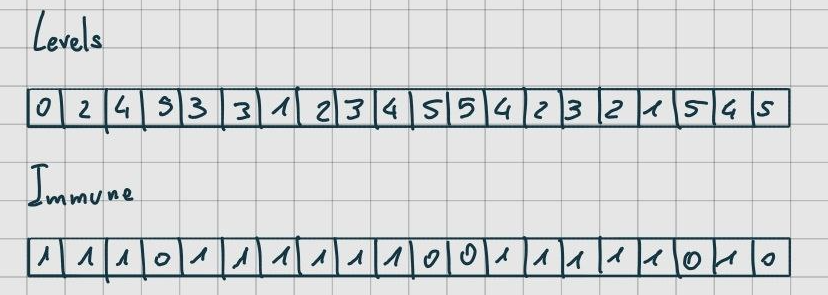 Levels
0 2 4 5 3 3 1 2 3 4 5 5 4 2 3 2 1 5 4 5
Immune
1 1 1 0 1 1 1 1 1 1 0 0 1 1 1 1 1 0 1 0